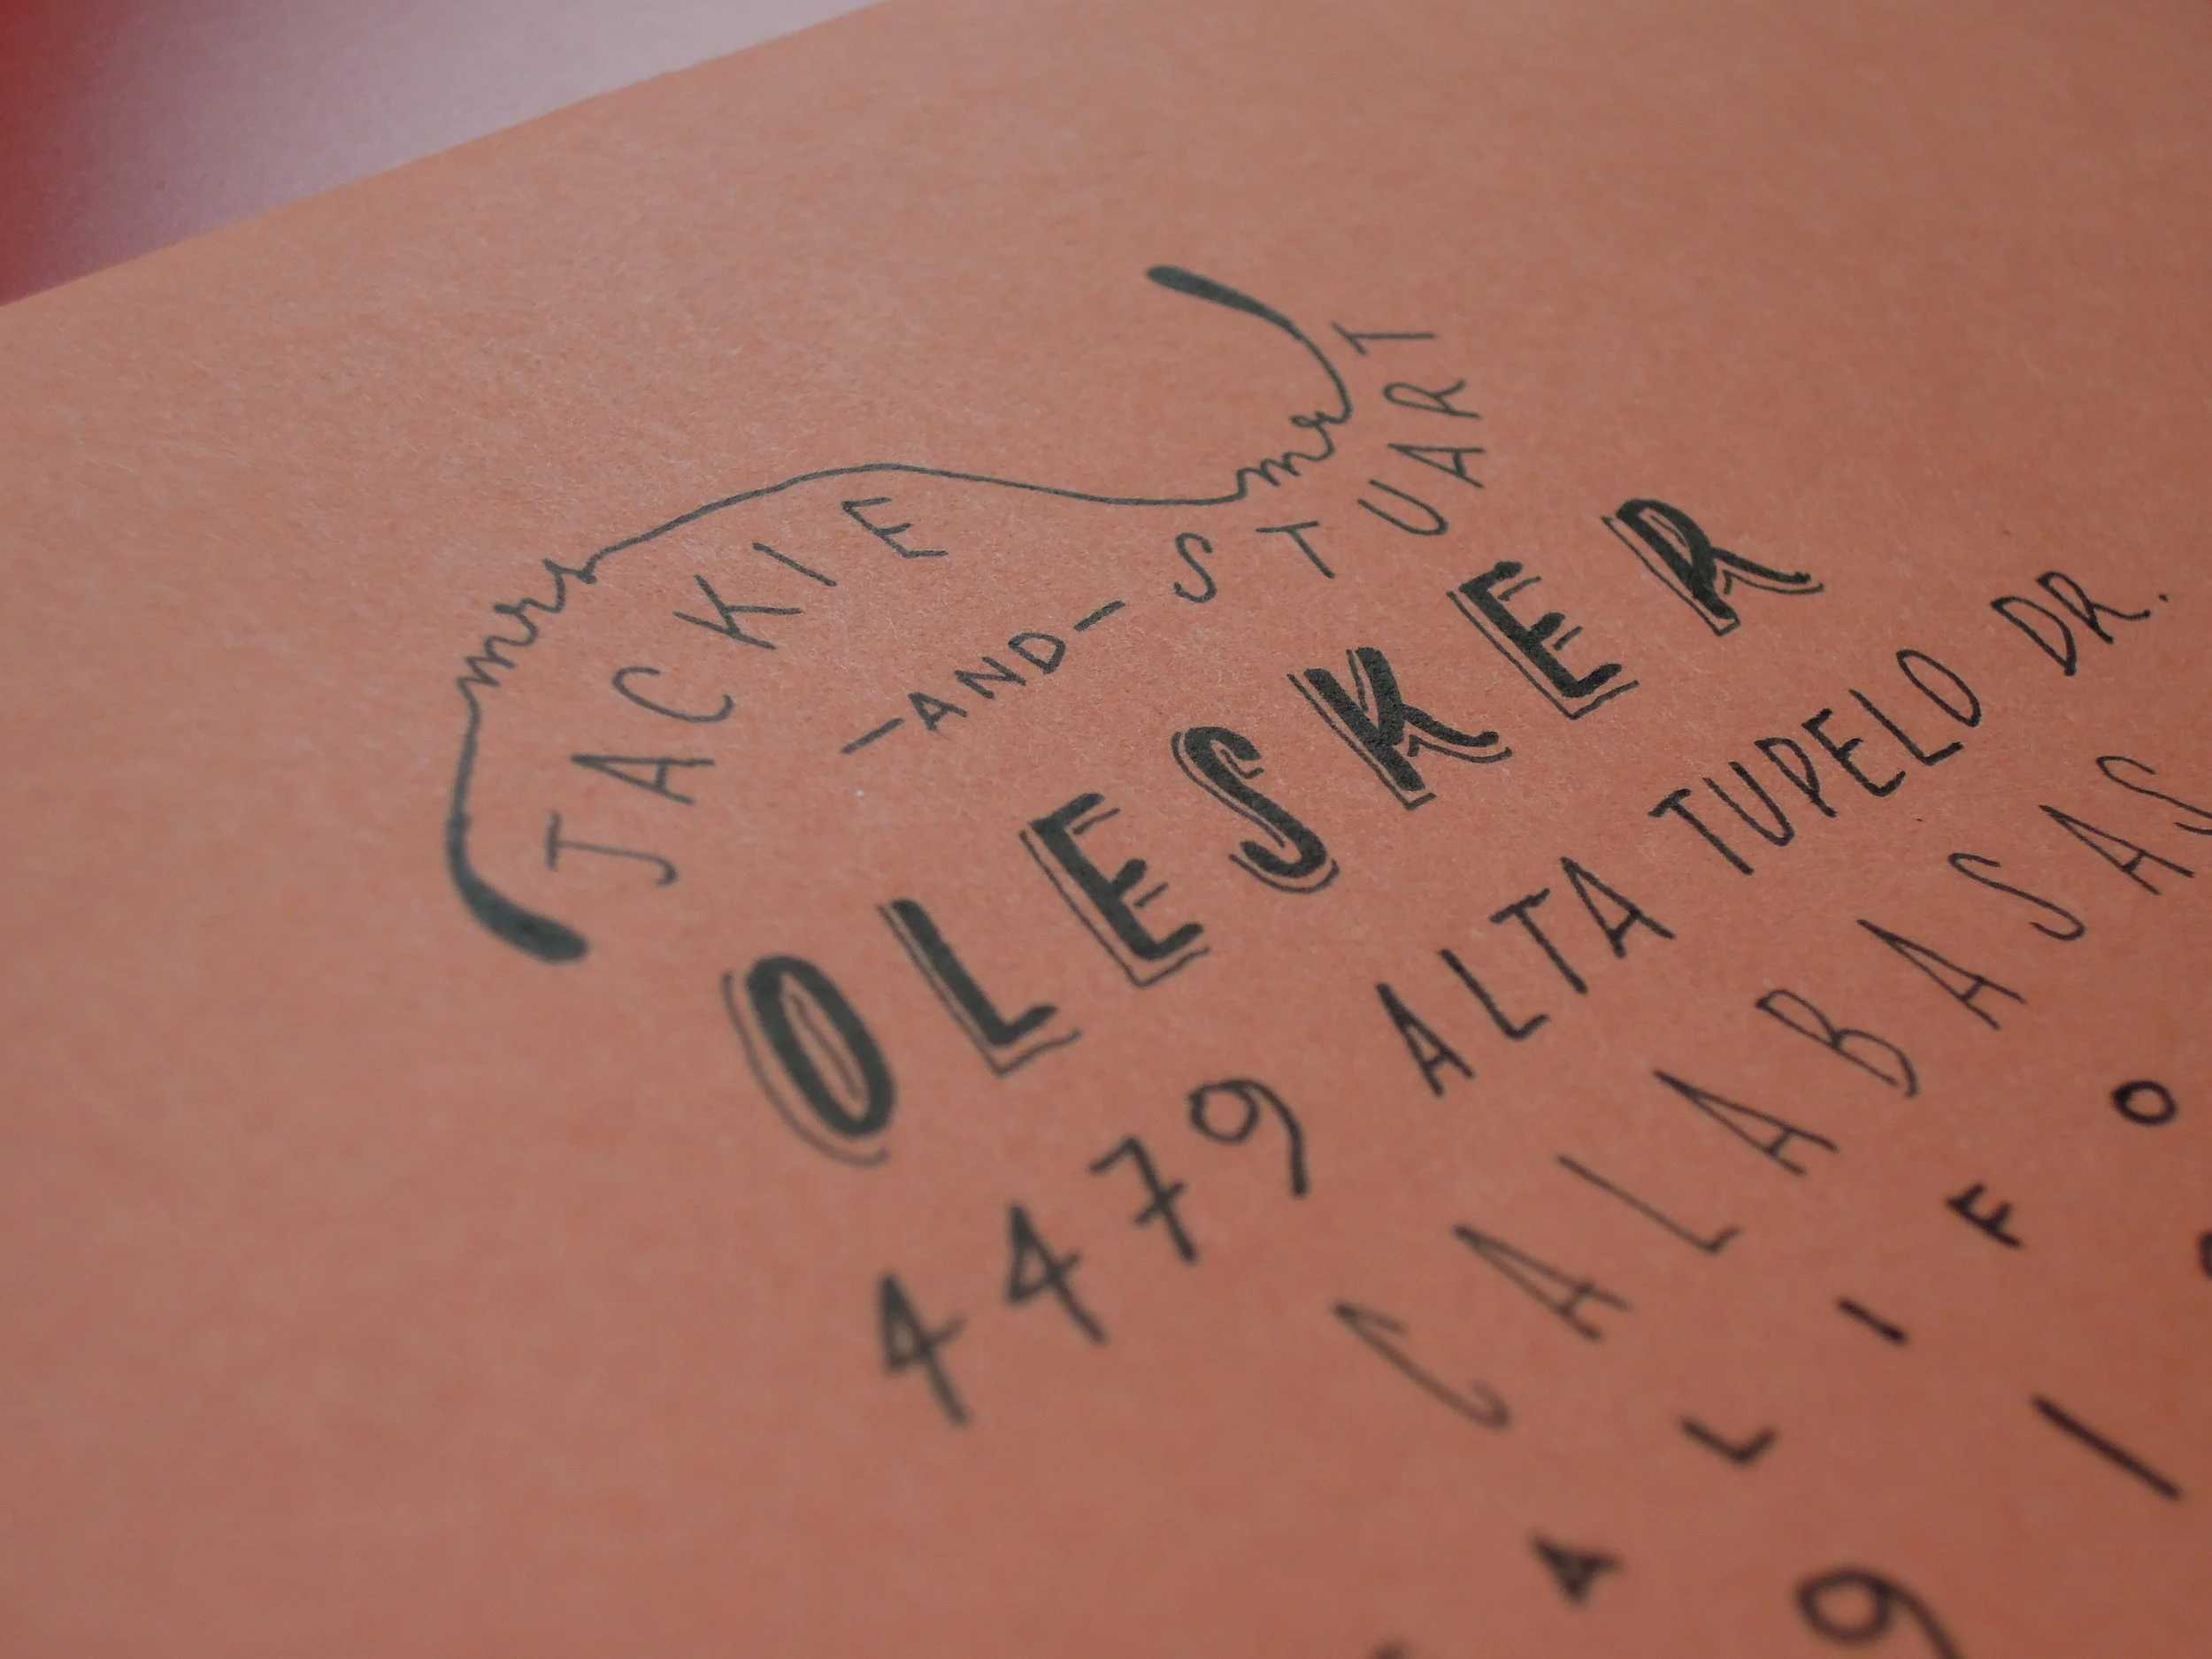 mrs mr
JACKIE
-AND- STUART
OLESKER
4479 ALTA TUPELO DR.
CALABASAS
CALIFO
91